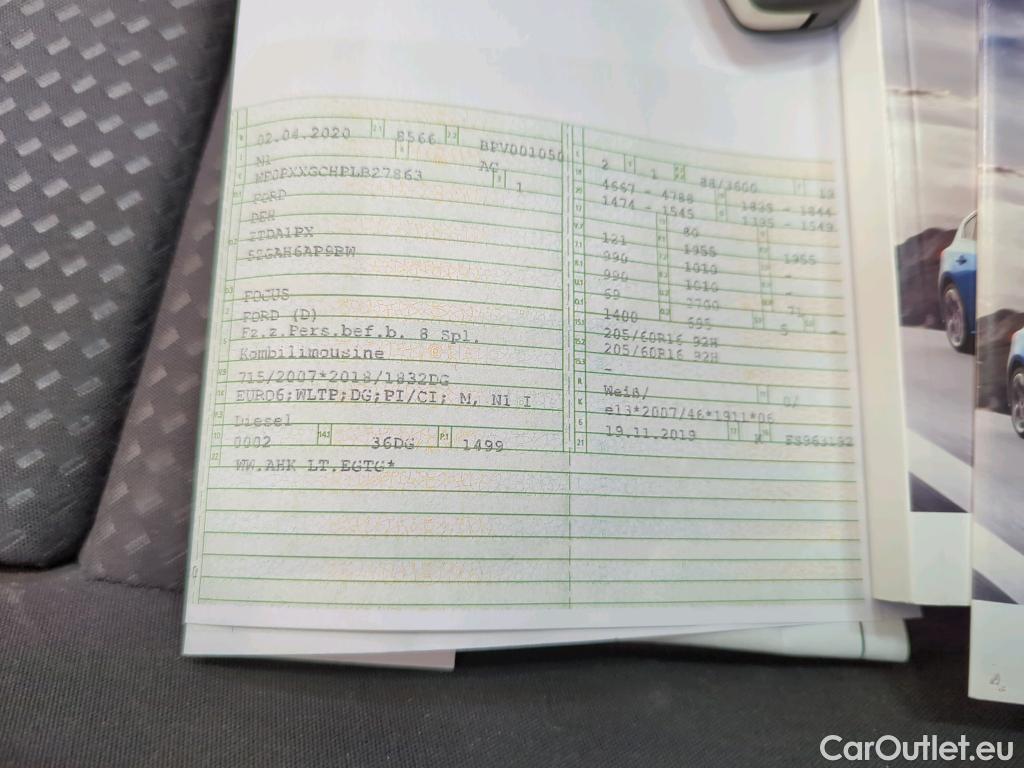 02.04.2020 8566 BPV001050
N1 AC
WF0PXXGCHPLB27863 1
FORD
DEH
ZTDA1PX
5GGAH6AP9BW
FOCUS
FORD (D)
Fz.z.Pers.bef.b. 8 Spl.
Kombilimousine
715/2007*2018/1832DG
EURO6;WLTP;DG;PI/CI; M, N1 I
Diesel
0002 14.1 36DG P.1 1499
22 WW.AHK LT.EGTG*
2 1 88/3600 19
4667 - 4788 1825 - 1844
1474 - 1545 - 1549
80
121 1955 1955
990 1010 -
990 1010 -
69 71
1400 695 5 -
205/60R16 92H
205/60R16 92H
-
Weiß/ 0/
e13*2007/46*1911*06
19.11.2019 K
21
CarOutlet.eu